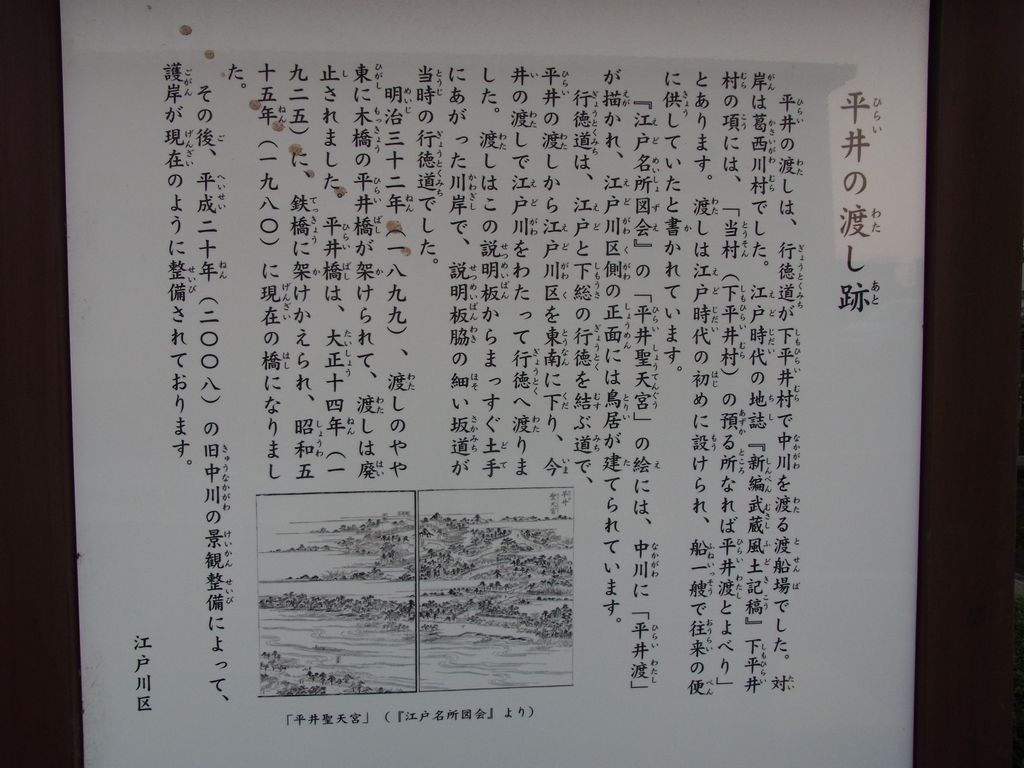 平井の渡し跡
平井の渡しは、行徳道が下平井村で中川を渡る渡船場でした。対
岸は葛西川村でした。江戸時代の地誌『新編武蔵風土記稿』下平井
村の項には、「当村（下平井村）の預る所なれば平井渡とよべり」
とあります。渡しは江戸時代の初めに設けられ、船一艘で往来の便
に供していたと書かれています。
『江戸名所図会』の「平井聖天宮」の絵には、中川に「平井渡」
が描かれ、江戸川区側の正面には鳥居が建てられています。
行徳道は、江戸と下総の行徳を結ぶ道で、
平井の渡しから江戸川区を東南に下り、今
井の渡しで江戸川をわたって行徳へ渡りま
した。渡しはこの説明板からまっすぐ土手
にあがった川岸で、説明板脇の細い坂道が
当時の行徳道でした。
明治三十二年（一八九九）、渡しのやや
東に木橋の平井橋が架けられて、渡しは廃
止されました。平井橋は、大正十四年（一
九二五）に、鉄橋に架けかえられ、昭和五
十五年（一九八〇）に現在の橋になりまし
た。
その後、平成二十年（二〇〇八）の旧中川の景観整備によって、
護岸が現在のように整備されております。
平井
聖天宮
「平井聖天宮」（『江戸名所図会』より）
江戸川区